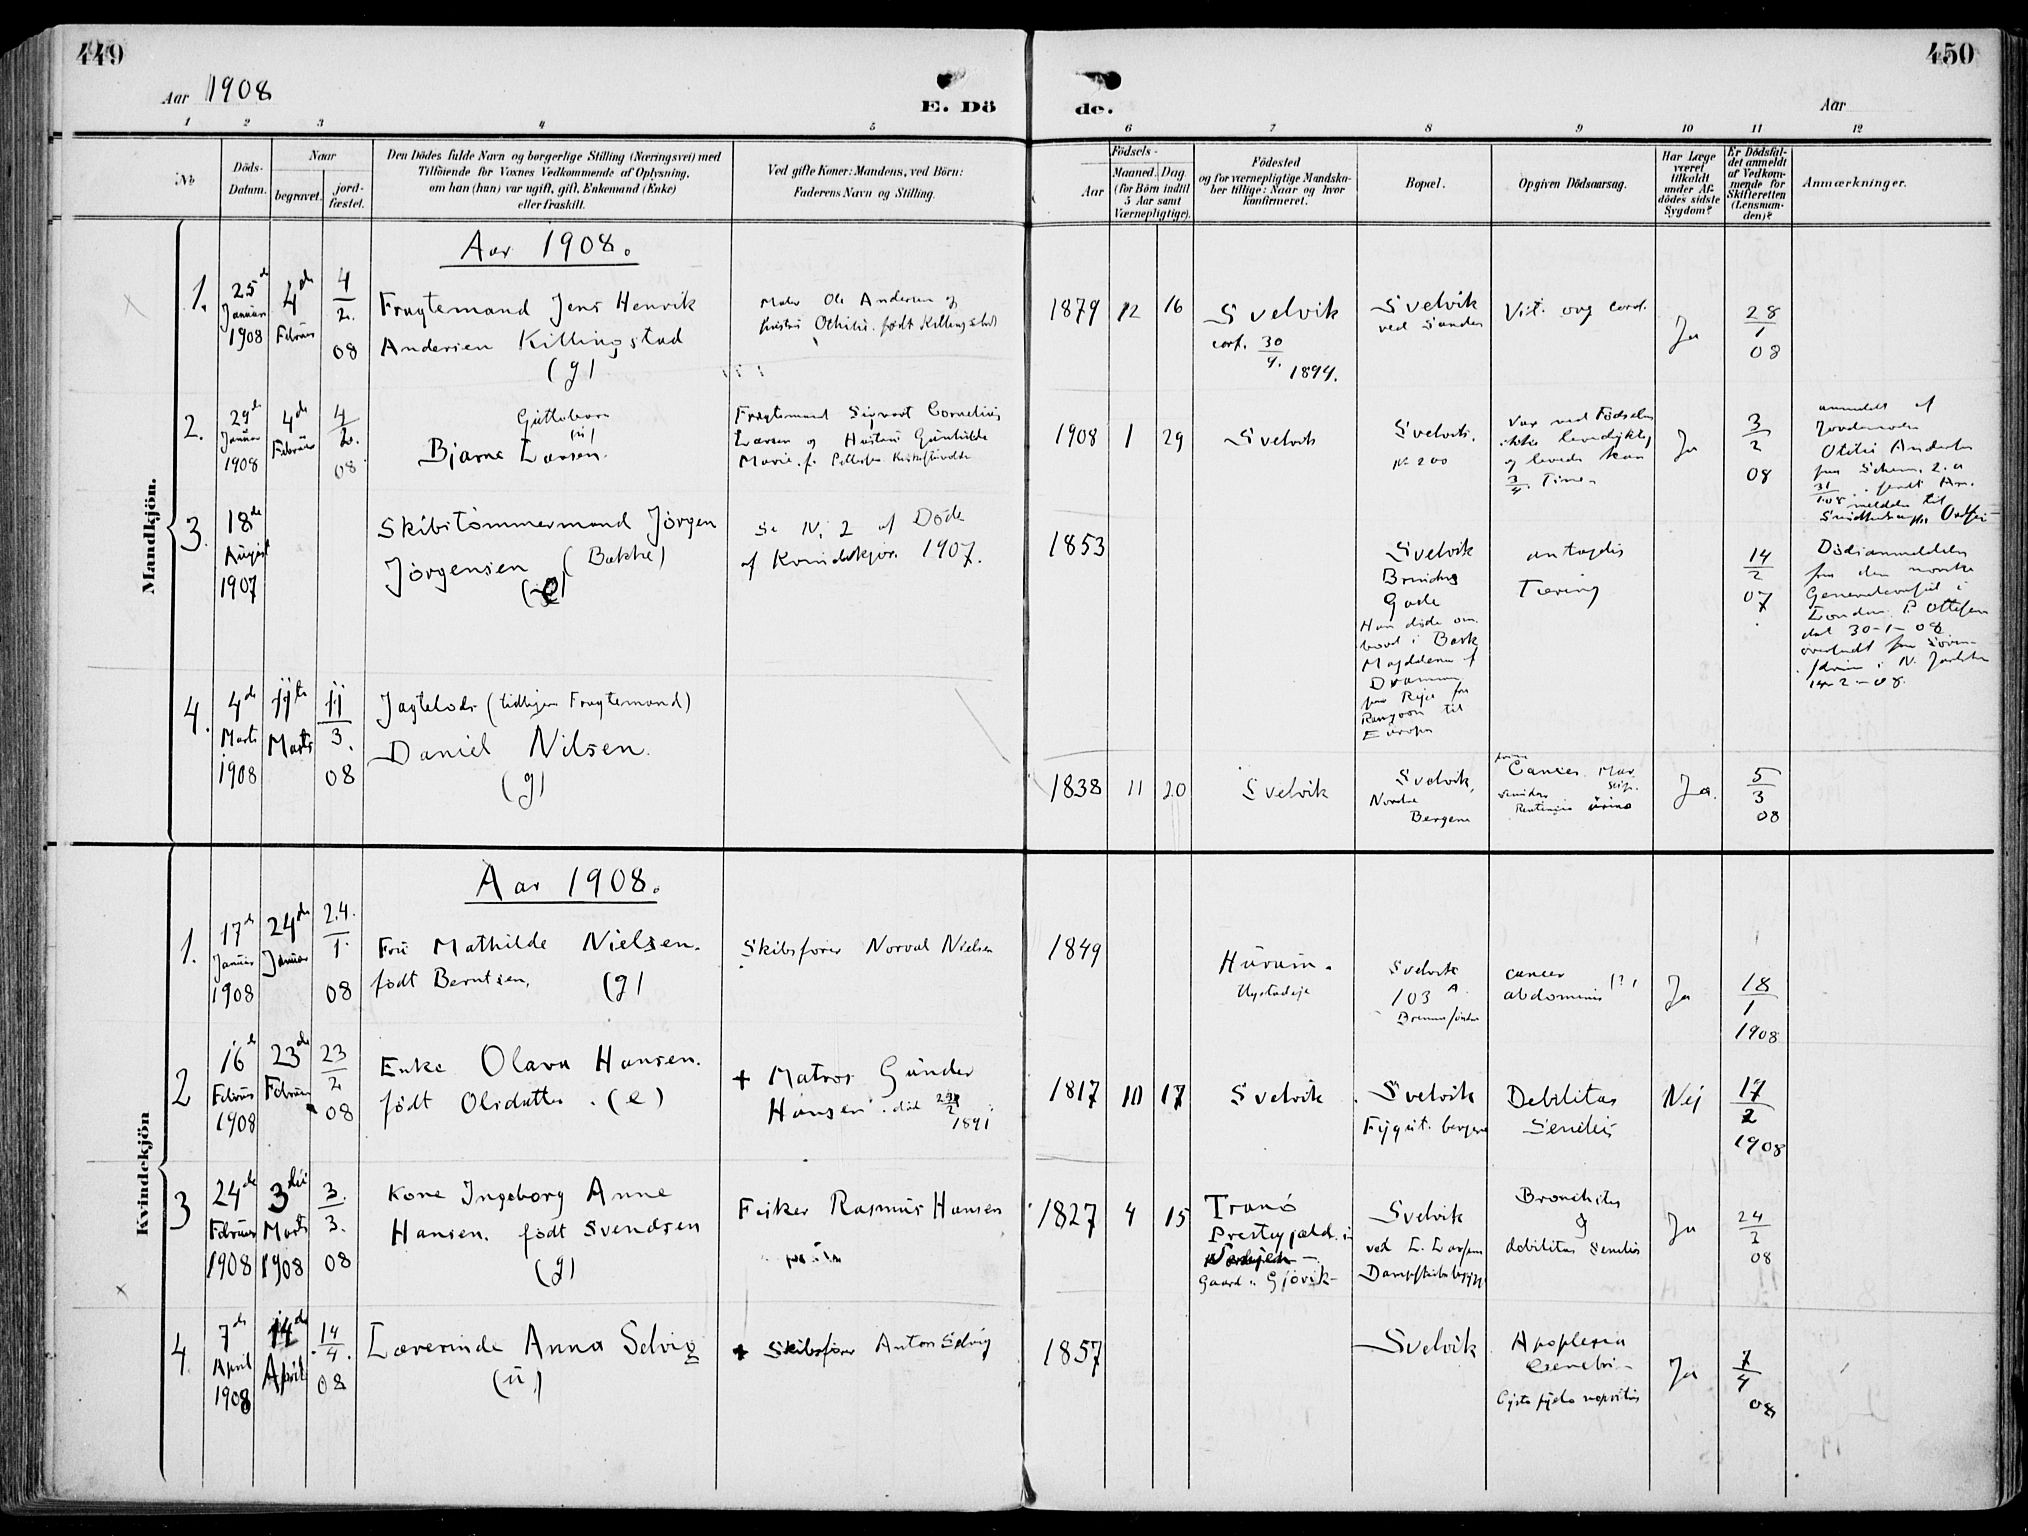 449
Aar 1908
E. Dö
de.
450
Aar
1 2 3 4 5 6 7 8 9 10 11 12
No
Döds-
Datum.
Naar
begravet.
jord-
fæstet.
Den Dödes fulde Navn og borgerlige Stilling (Næringsvei) med
Tilföiende for Voxnes Vedkommende af Oplysning,
om han (hun) var ugift, gift, Enkemand (Enke)
eller fraskilt.
Ved gifte Koner: Mandens, ved Börn:
Faderens Navn og Stilling.
Födsels-
Aar
Maaned. Dag.
(for Börn indtil
5 Aar samt
Værnepligtige).
Födested
og for værnepligtige Mandska-
ber tillige: Naar og hvor
konfirmeret.
Bopæl.
Opgiven Dödsaarsag.
Har Læge
været
tilkaldt
under Af-
dödes sidste
Sygdom?
Er Dödsfal-
det anmeldt
af Vedkom-
mende for
Skifteretten
(Lensman-
den)?
Anmærkninger.
Mandkjön.
Aar 1908.
1.
25de
Januar
1908
4de
Februar
4
2.
08
Fragtemand Jens Henrik
Andersen Killingstad
(g)
Ole Andersen og
Othilie født Killingstad
1879 12 16
Svelvik
conf. 30
4.
1894.
Svelvik
ved Sanden
Vit. org cord.
Ja
28
1
08
2.
29de
Januar
1908
4de
Februar
4
2.
08
Guttebarn
(u)
Bjarne Larsen.
Fragtemand Sigvart Cornelius
Larsen og Hustru Gunhilde
Marie f.
1908 1 29
Svelvik
Svelvik.
No 200
Var ved Fødselen
ikke levedygtig
og levede kun
3
4 Time
Ja
3
2
08
anmeldt af
Jordemoder
Otilie Andersen
31
1.08
3.
18de
August
1907
Skibstømmermand Jørgen
Jørgensen (Bakke)
(e)
Se N. 2 af Døde
af Kvindekjøn 1907.
1853
Svelvik
Gade
Han døde om-
bord i Bark
Magdalena af
Drammen
paa Rejse fra
Rangoon til
Europa
antagelig
Tæring
14
2
07
Dødsanmeldelse
fra den norske
Generalconsul i
London P. Ottesen
dat 30-1-08
oversendt fra Soren-
i N. Jarlsberg
14-2-08.
4.
4de
Marts
1908
11te
Marts
11
3.
08
Jagtelods (tidligere Fragtemand)
Daniel Nilsen.
(g)
1838 11 20
Svelvik
Svelvik,
Nordre
Bergene
Cancer
urina
Ja.
5
3
08
Kvindekjön
Aar 1908.
1.
17de
Januar
1908
24de
Januar
24.
1.
08
Fru Mathilde Nielsen.
født Berntsen. (g)
Skibsfører Norval Nielsen
1849
Hurum.
Svelvik
103 A.
cancer
abdominis (?)
Ja
18
1
1908
2
16de
Februar
1908
23de
Februar
23
2
08
Enke Olava Hansen.
født Olsdatter. (e)
+ Matros Gunder
Hansen. død
1891
1817 10 17
Svelvik
Svelvik
Debilitas
Senilis
Nej
17
2
1908
3
24de
Februar
1908
3die
Marts
1908
3.
3.
08
Kone Ingeborg Anne
Hansen. født Svendsen
(g)
Fisker Rasmus Hansen
1827 4 15
Tranø
Prestegjæld i
Gaard i Gjøvik-
Svelvik
ved L. Larsens
Dampskibsbrygge
Bronchitis
&
debilitas senilis
Ja
24
2
08
4.
7de
April
1908
14de
April
14
4.
08
Lærerinde Anna Selvig
(u)
+ Skibsfører Anton Selvig
1857
Svelvik
Apoplexia
Cerebri-
Ja
7
4
08